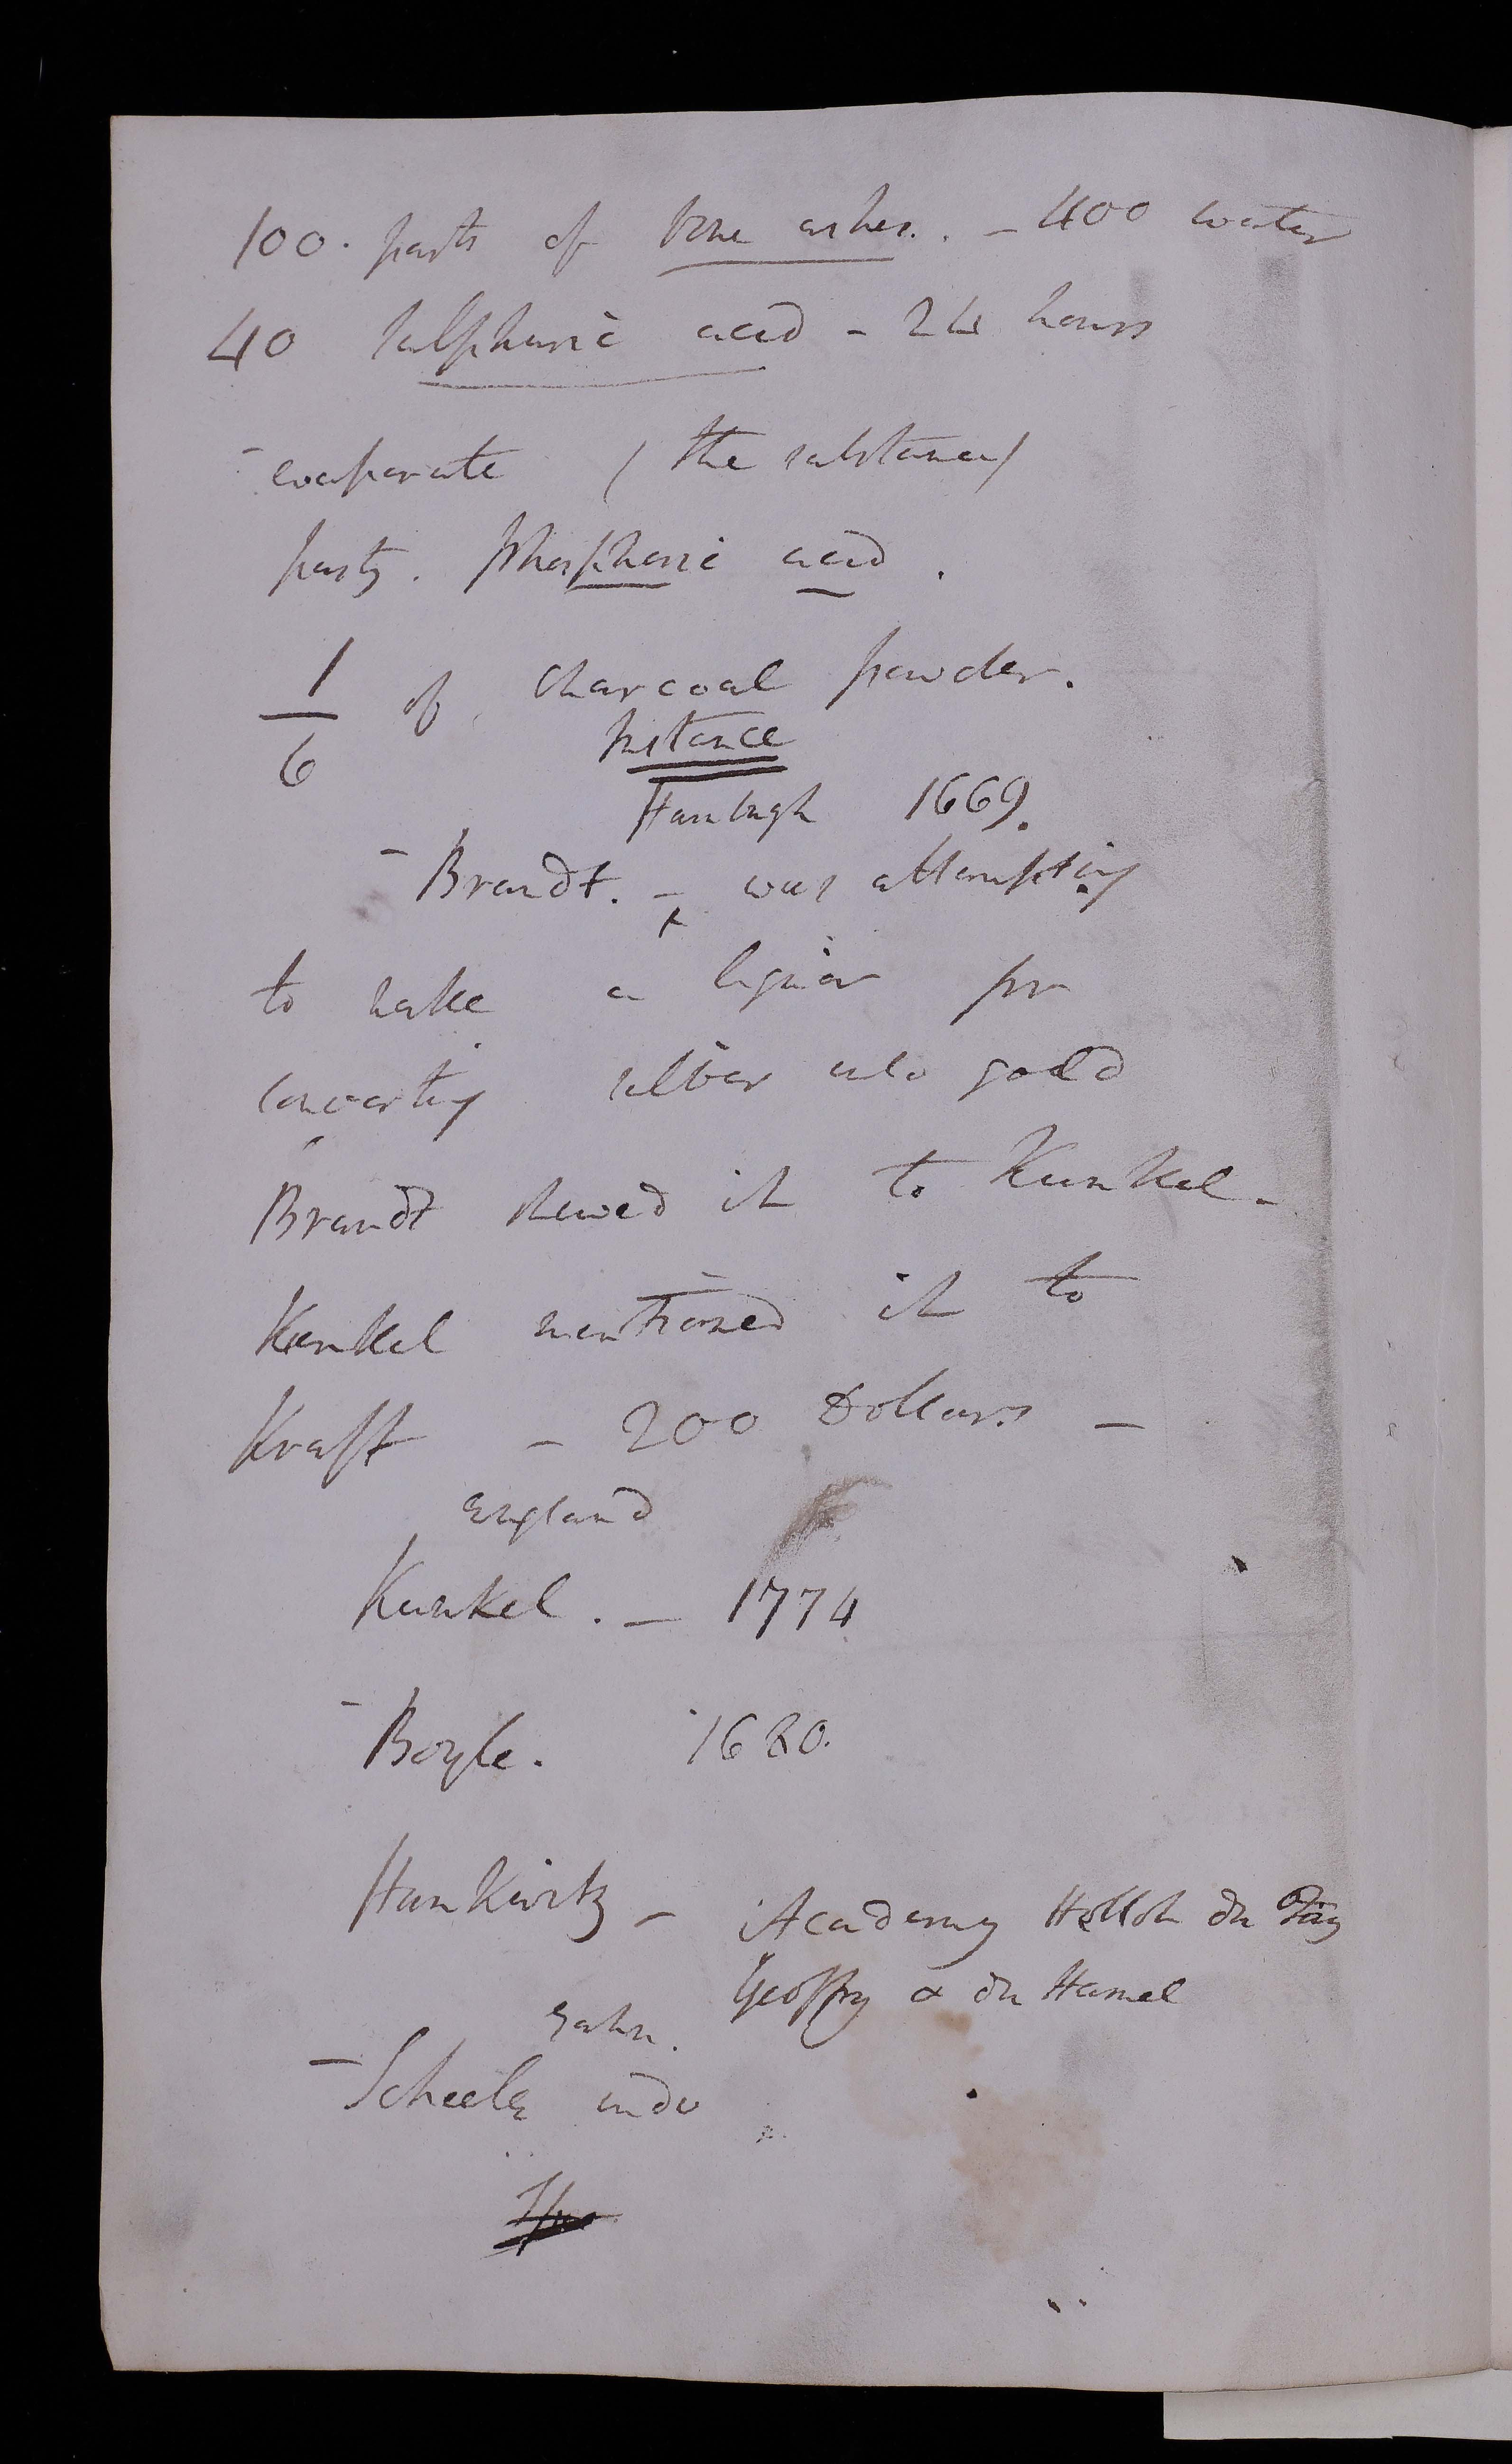 100. parts of bone ashes. - 400 water
40 sulphuric acid - 24 hours
- evaporate / the substance /
partz. phosphoric acid.
1/6 of charcoal powder.
Instance
Hamburgh 1669.
- Brandt. - was attempting
to make a liquor for
converting silver into gold
Brandt shewed it to Kunkel -
Kunkel mentioned it to
Kraft - 200 Dollars -
England
Kunkel. - 1774
- Boyle. 1680.
Hankwitz - Academy Hellot du Fay
Geoffry & du Hamel
Gahn.
- Scheele